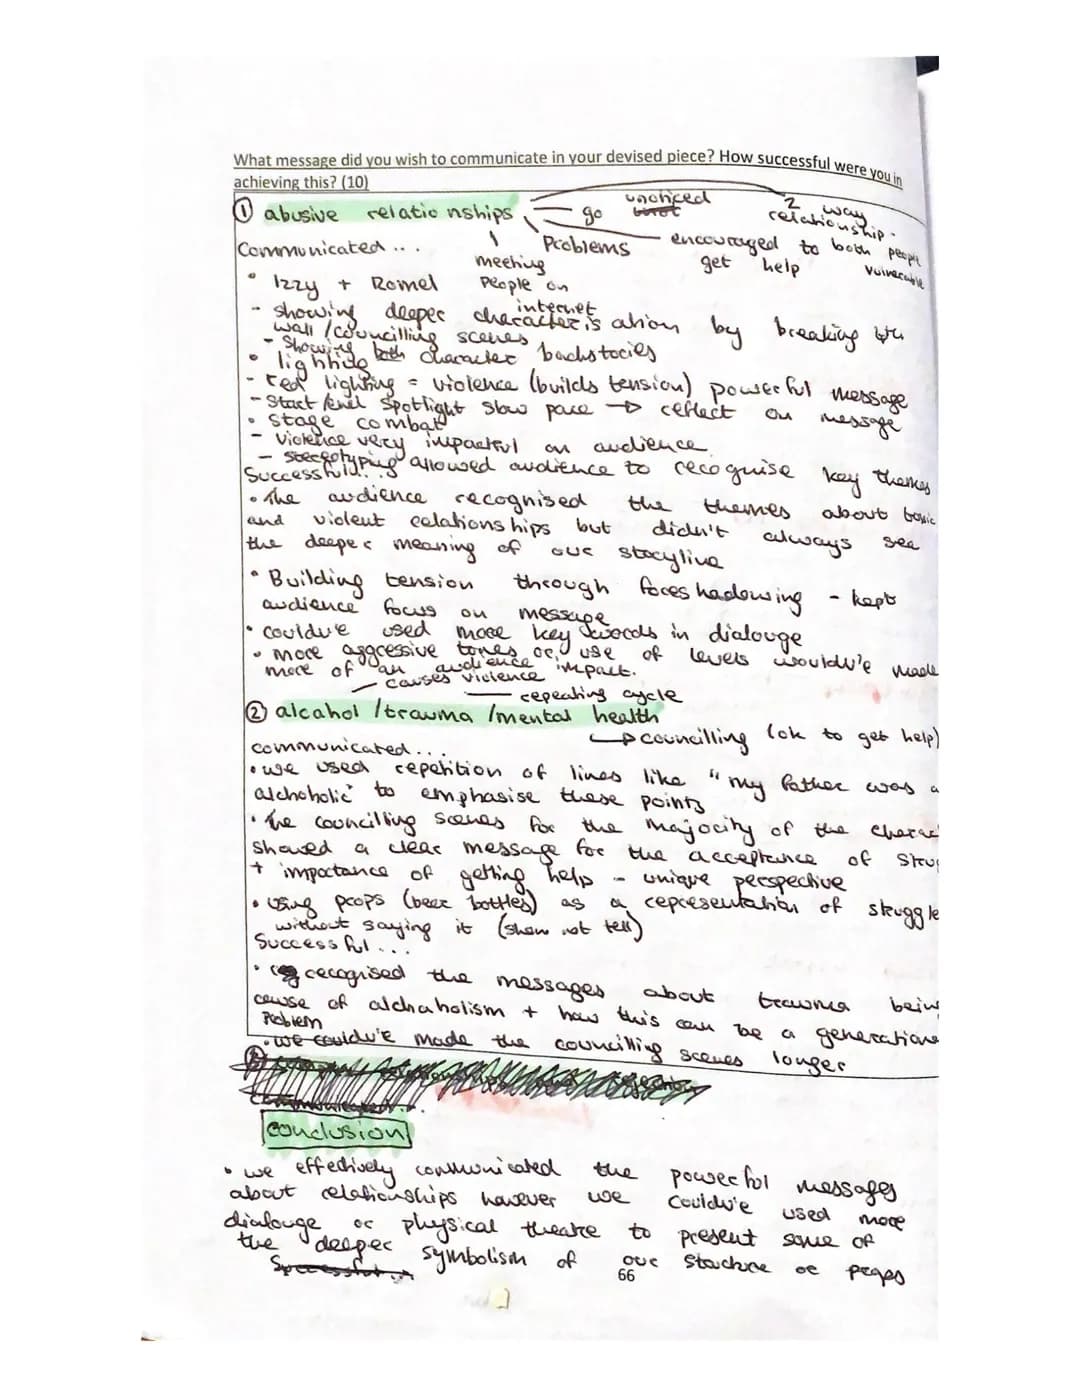 What message did you wish to communicate in your devised piece? How successful were you in
achieving this? (10)
① abusive relationships
go unoticed
2 way relationship -
both people vulnerable
Problems
encouraged to
get help
meeting
people on
internet
Communicated ...
• Izzy + Romel
- showing deeper characterisation by breaking 4th
wall / councilling scenes
- Showing both character backstories
• lighting
- red lighting = violence (builds tension) powerful message
- Start/end Spotlight slow pace → reflect on message
• stage combat
- violence very impactful on audience
- stereotyping allowed audience to recognise key themes
Successful...
• The audience recognised the themes about toxic
and violent relationships but didn't always see
the deeper meaning of our storyline
• Building tension through foreshadowing - kept
audience focus on message
• couldv'e used more key words in dialouge
• more aggressive tones or use of levels wouldv'e made
more of an audience impact.
- causes violence
- repeating cycle
② alcahol /trauma /mental health
↳ councilling (ok to get help)
communicated...
• we used repetition of lines like "my father was a
alchoholic" to emphasise these points
• The councilling scenes for the majority of the charac
showed a clear message for the acceptance of stru
+ importance of getting help - unique perspective
• using props (beer bottles) as a representation of struggle
without saying it (show not tell)
Successful...
• recognised the messages about trauma being
cause of alchaholism + how this can be a generationa
Problem
• we couldv'e made the councilling scenes longer
Conclusion
• we effectively communicated the powerful messages
about relationships however we couldv'e used more
dialouge or physical theatre to present some of
the deeper symbolism of our structure or props
66